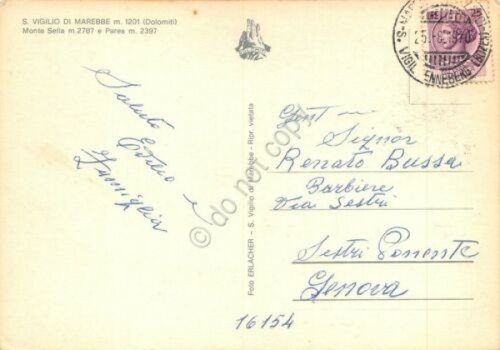 S. VIGILIO DI MAREBBE m. 1201 (Dolomiti)
Monte Sella m.2787 e Pares m. 2397
Saluti
e
Famiglia
Foto ERLACHER - S. Vigilio di Marebbe - Ripr. vietata
Gent mi
Signor
Renato Bussa
Barbiere
Via Sestri
Sestri Ponente
Genova
16154
S. VIGIL ENNEBERG
do not copy